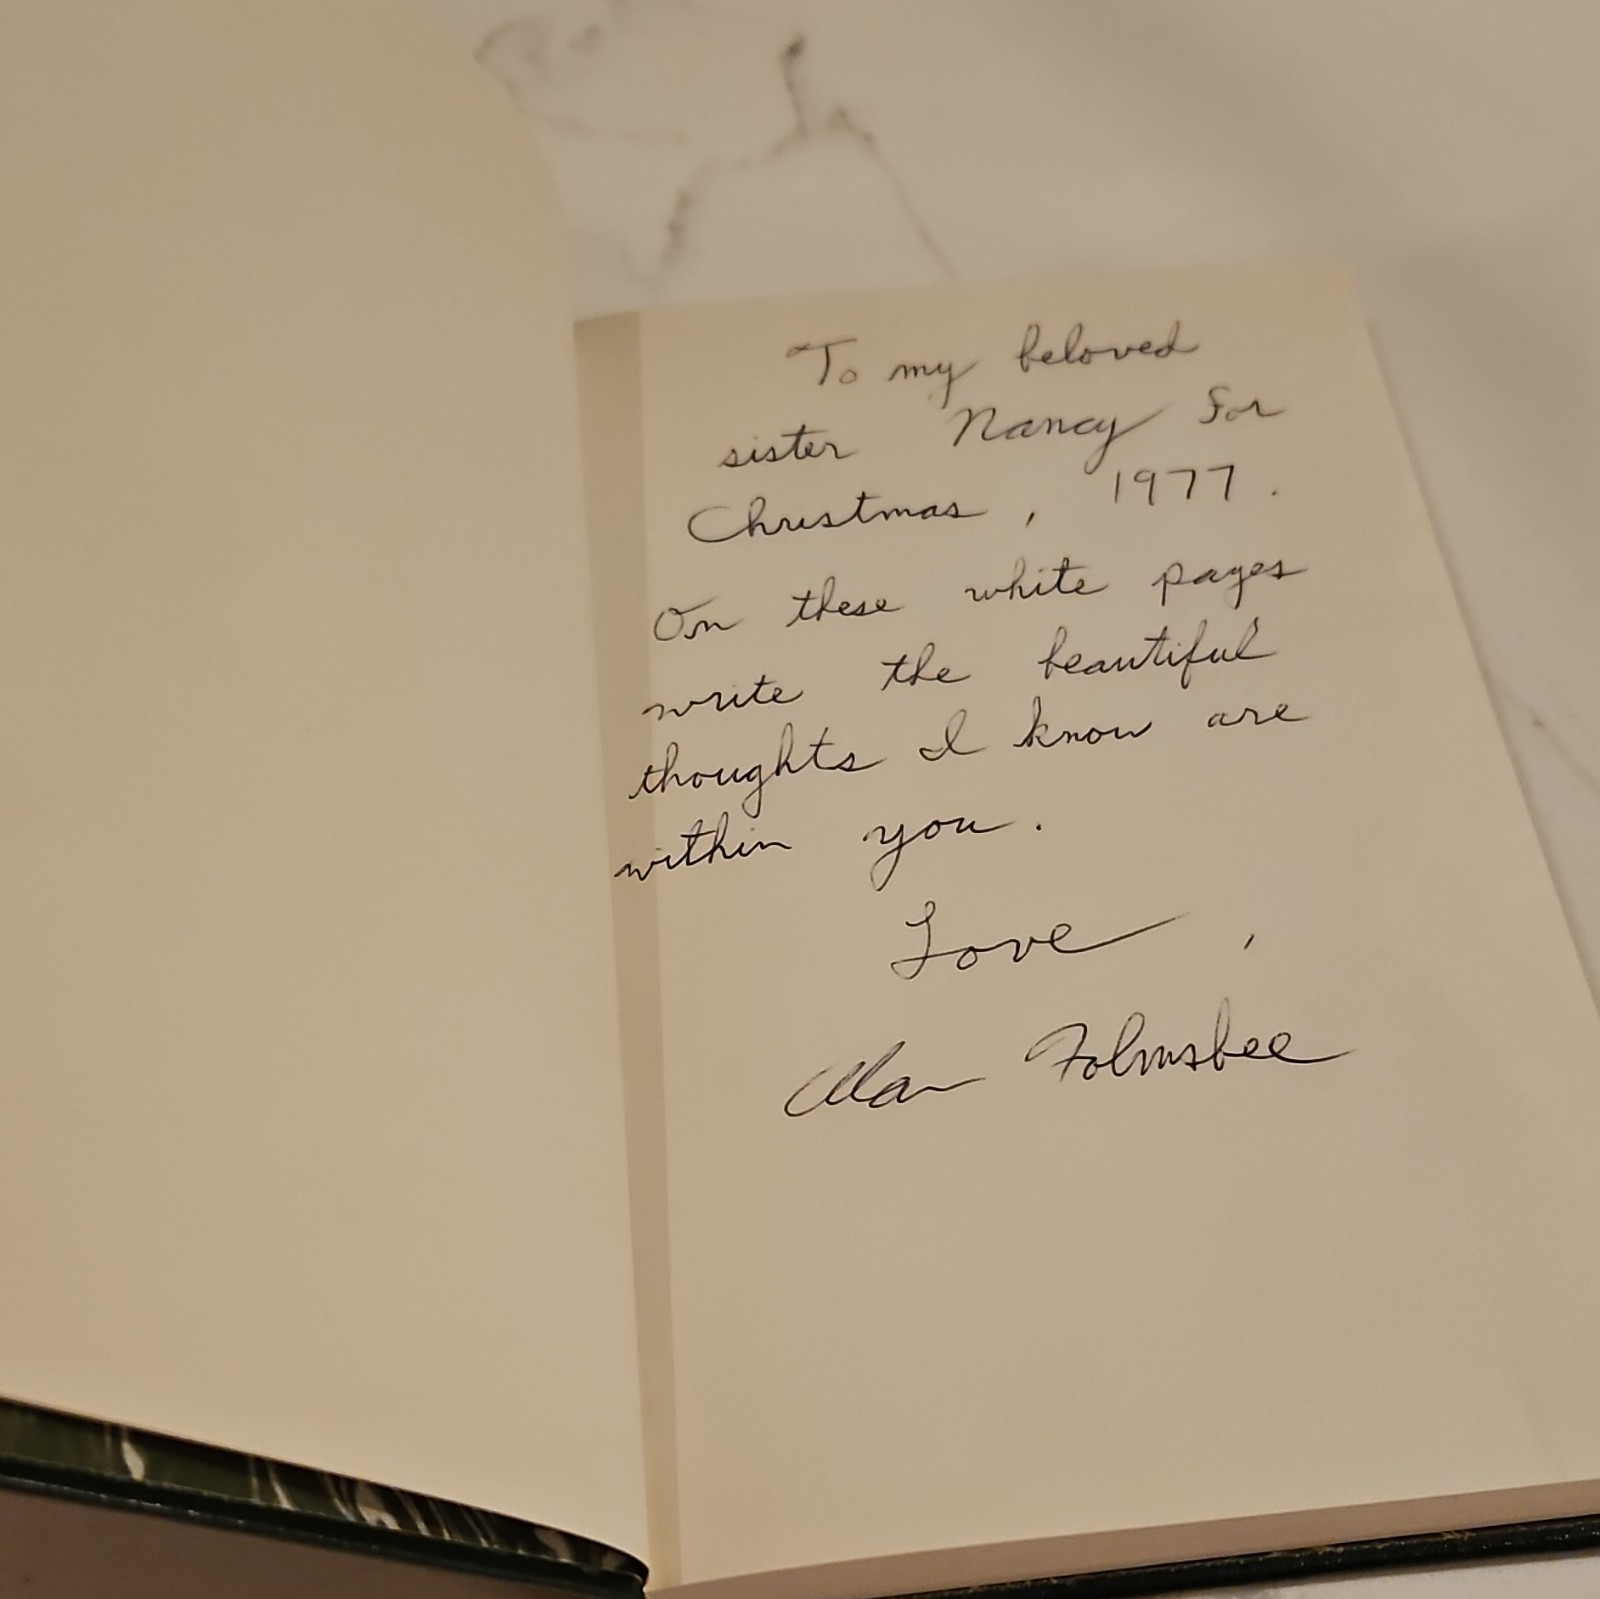 To my beloved
sister Nancy for
Christmas, 1977.
On these white pages
write the beautiful
thoughts I know are
within you.
Love,
Alan Folmsbee